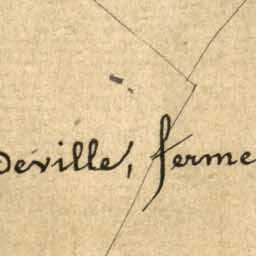 Deville, ferme